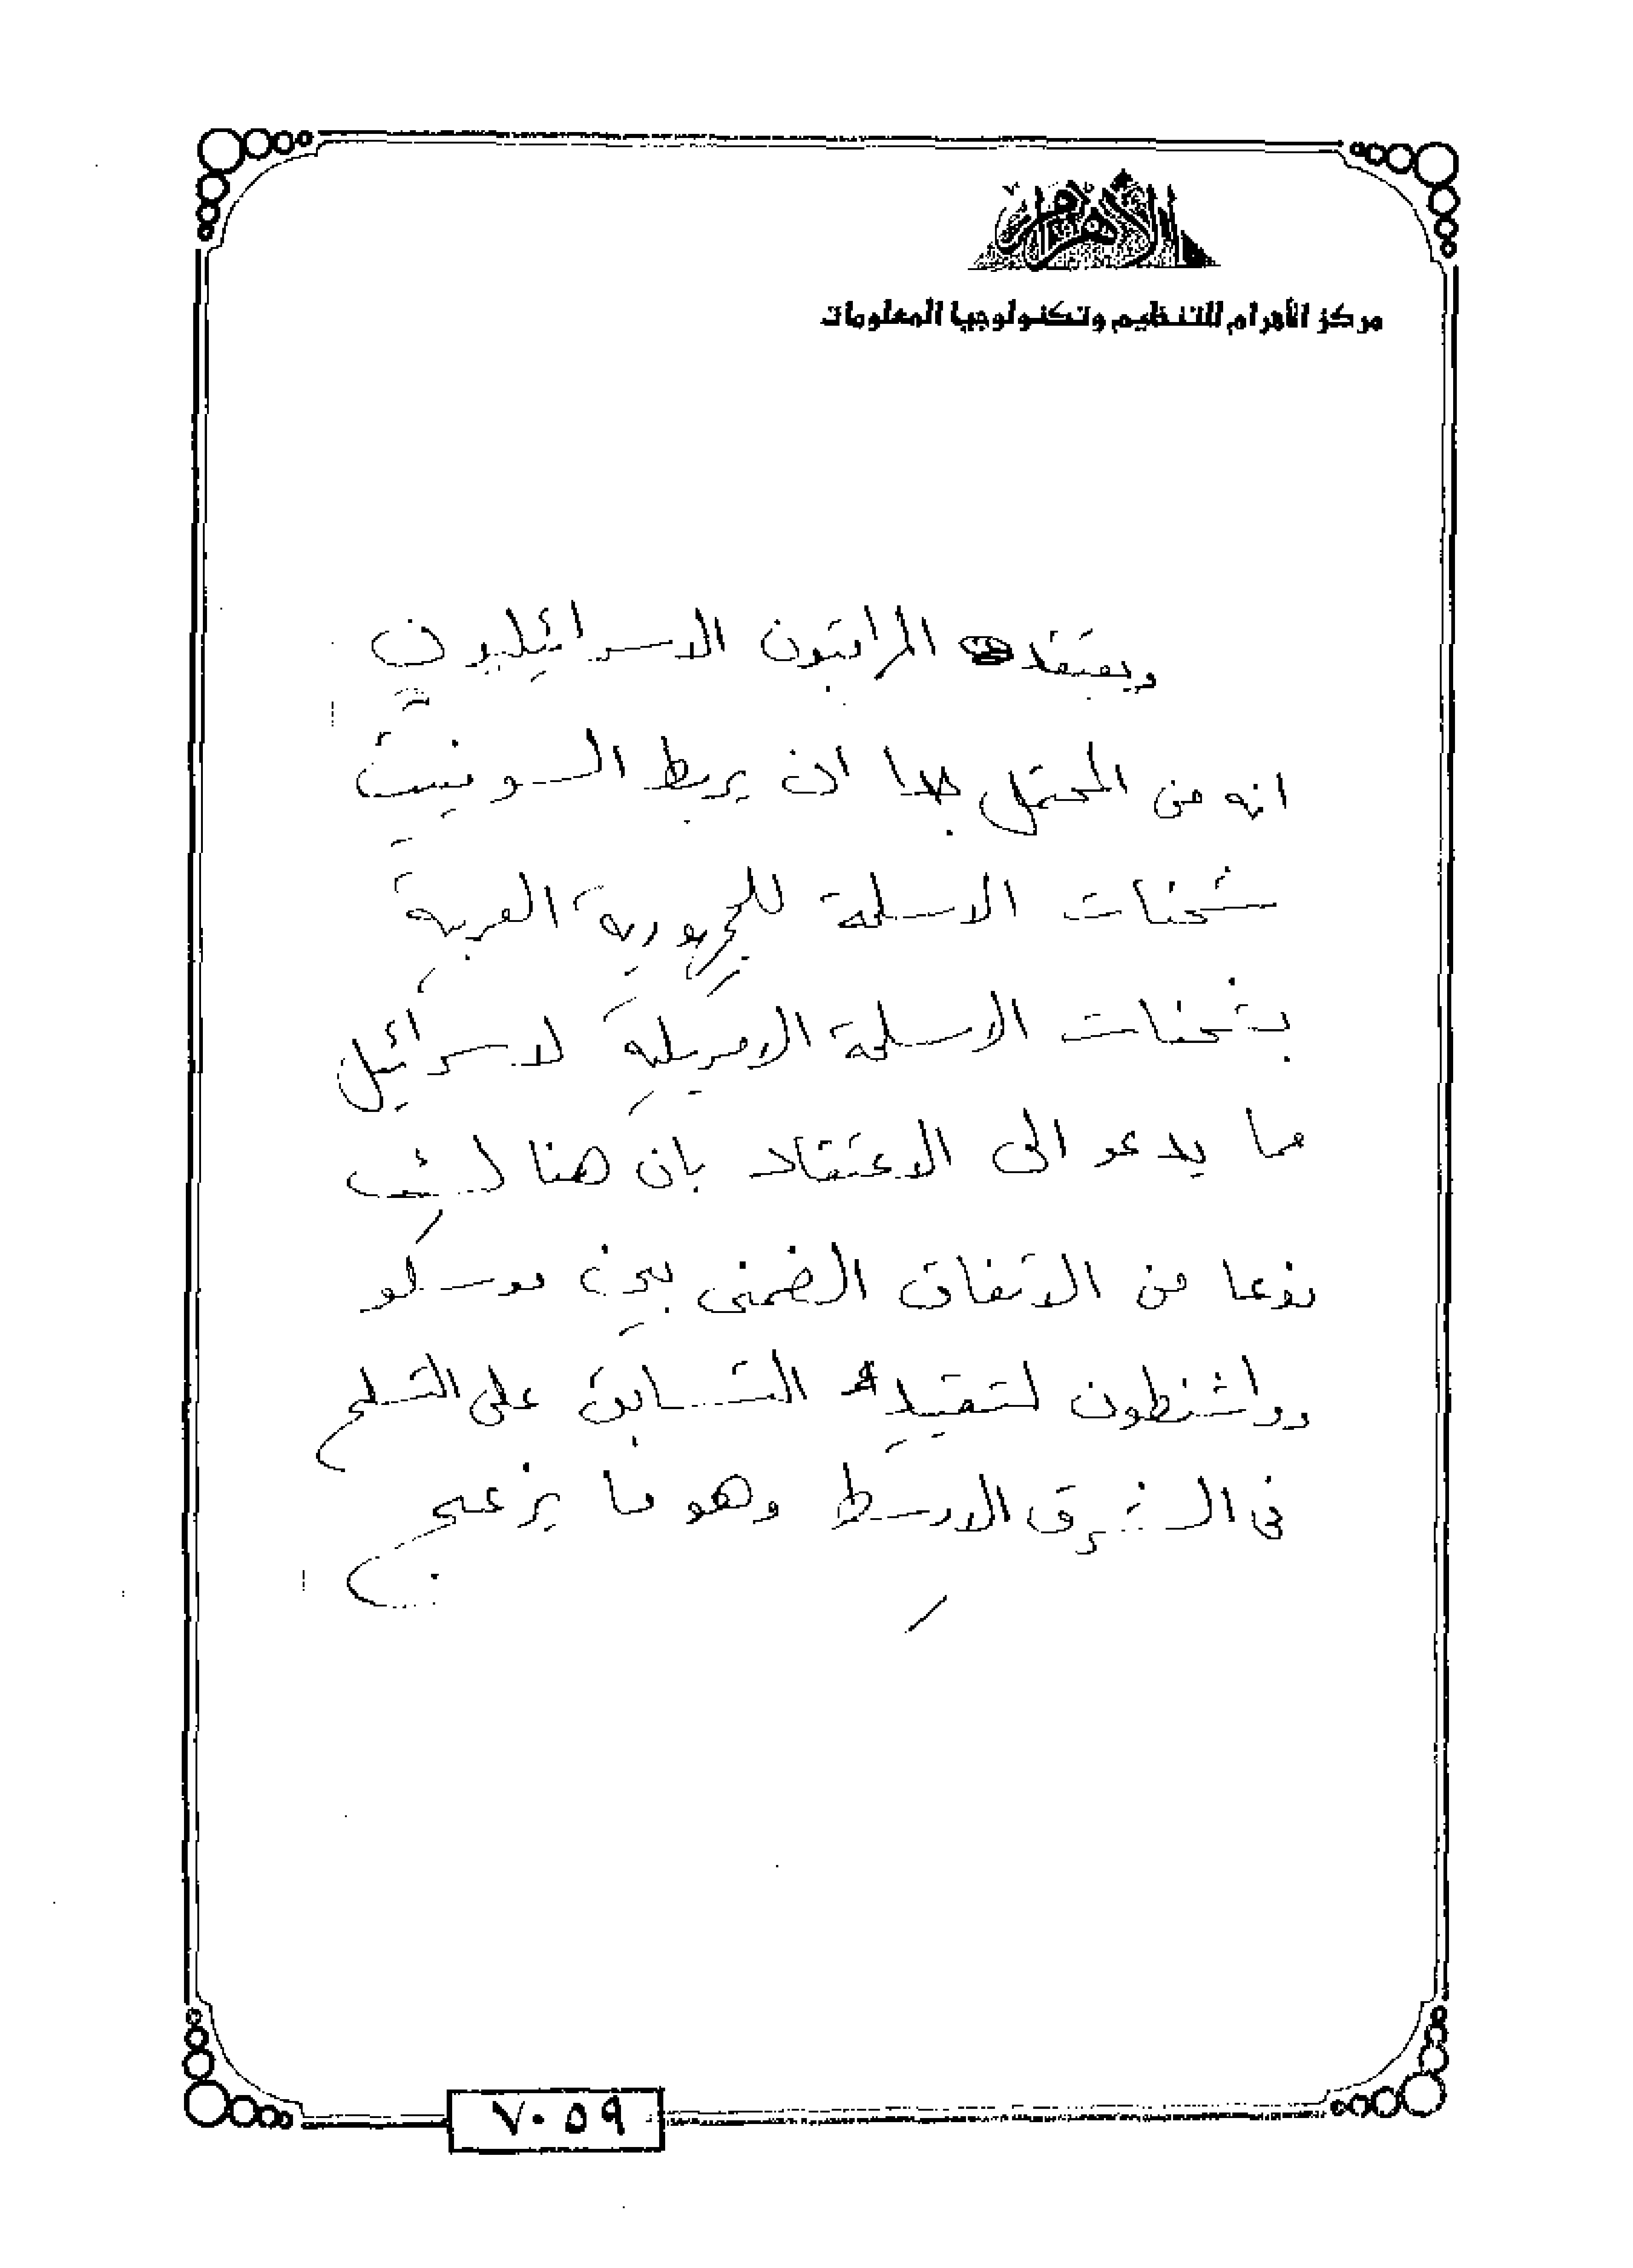 الأهرام
مركز الأهرام للتنظيم وتكنولوجيا المعلومات
ويعتقد المراقبون الاسرائيليون
انه من المحتمل جدا ان يربط السوفييت
شحنات الاسلحة للجمهورية العربية
بشحنات الاسلحة الامريكية لاسرائيل
ما يدعو الى الاعتقاد بان هنالك
نوعا من الاتفاق الضمنى بين موسكو
وواشنطون لتقييد التسابق على التسلح
فى الشرق الاوسط وهو ما يزعج
٧٠٥٩